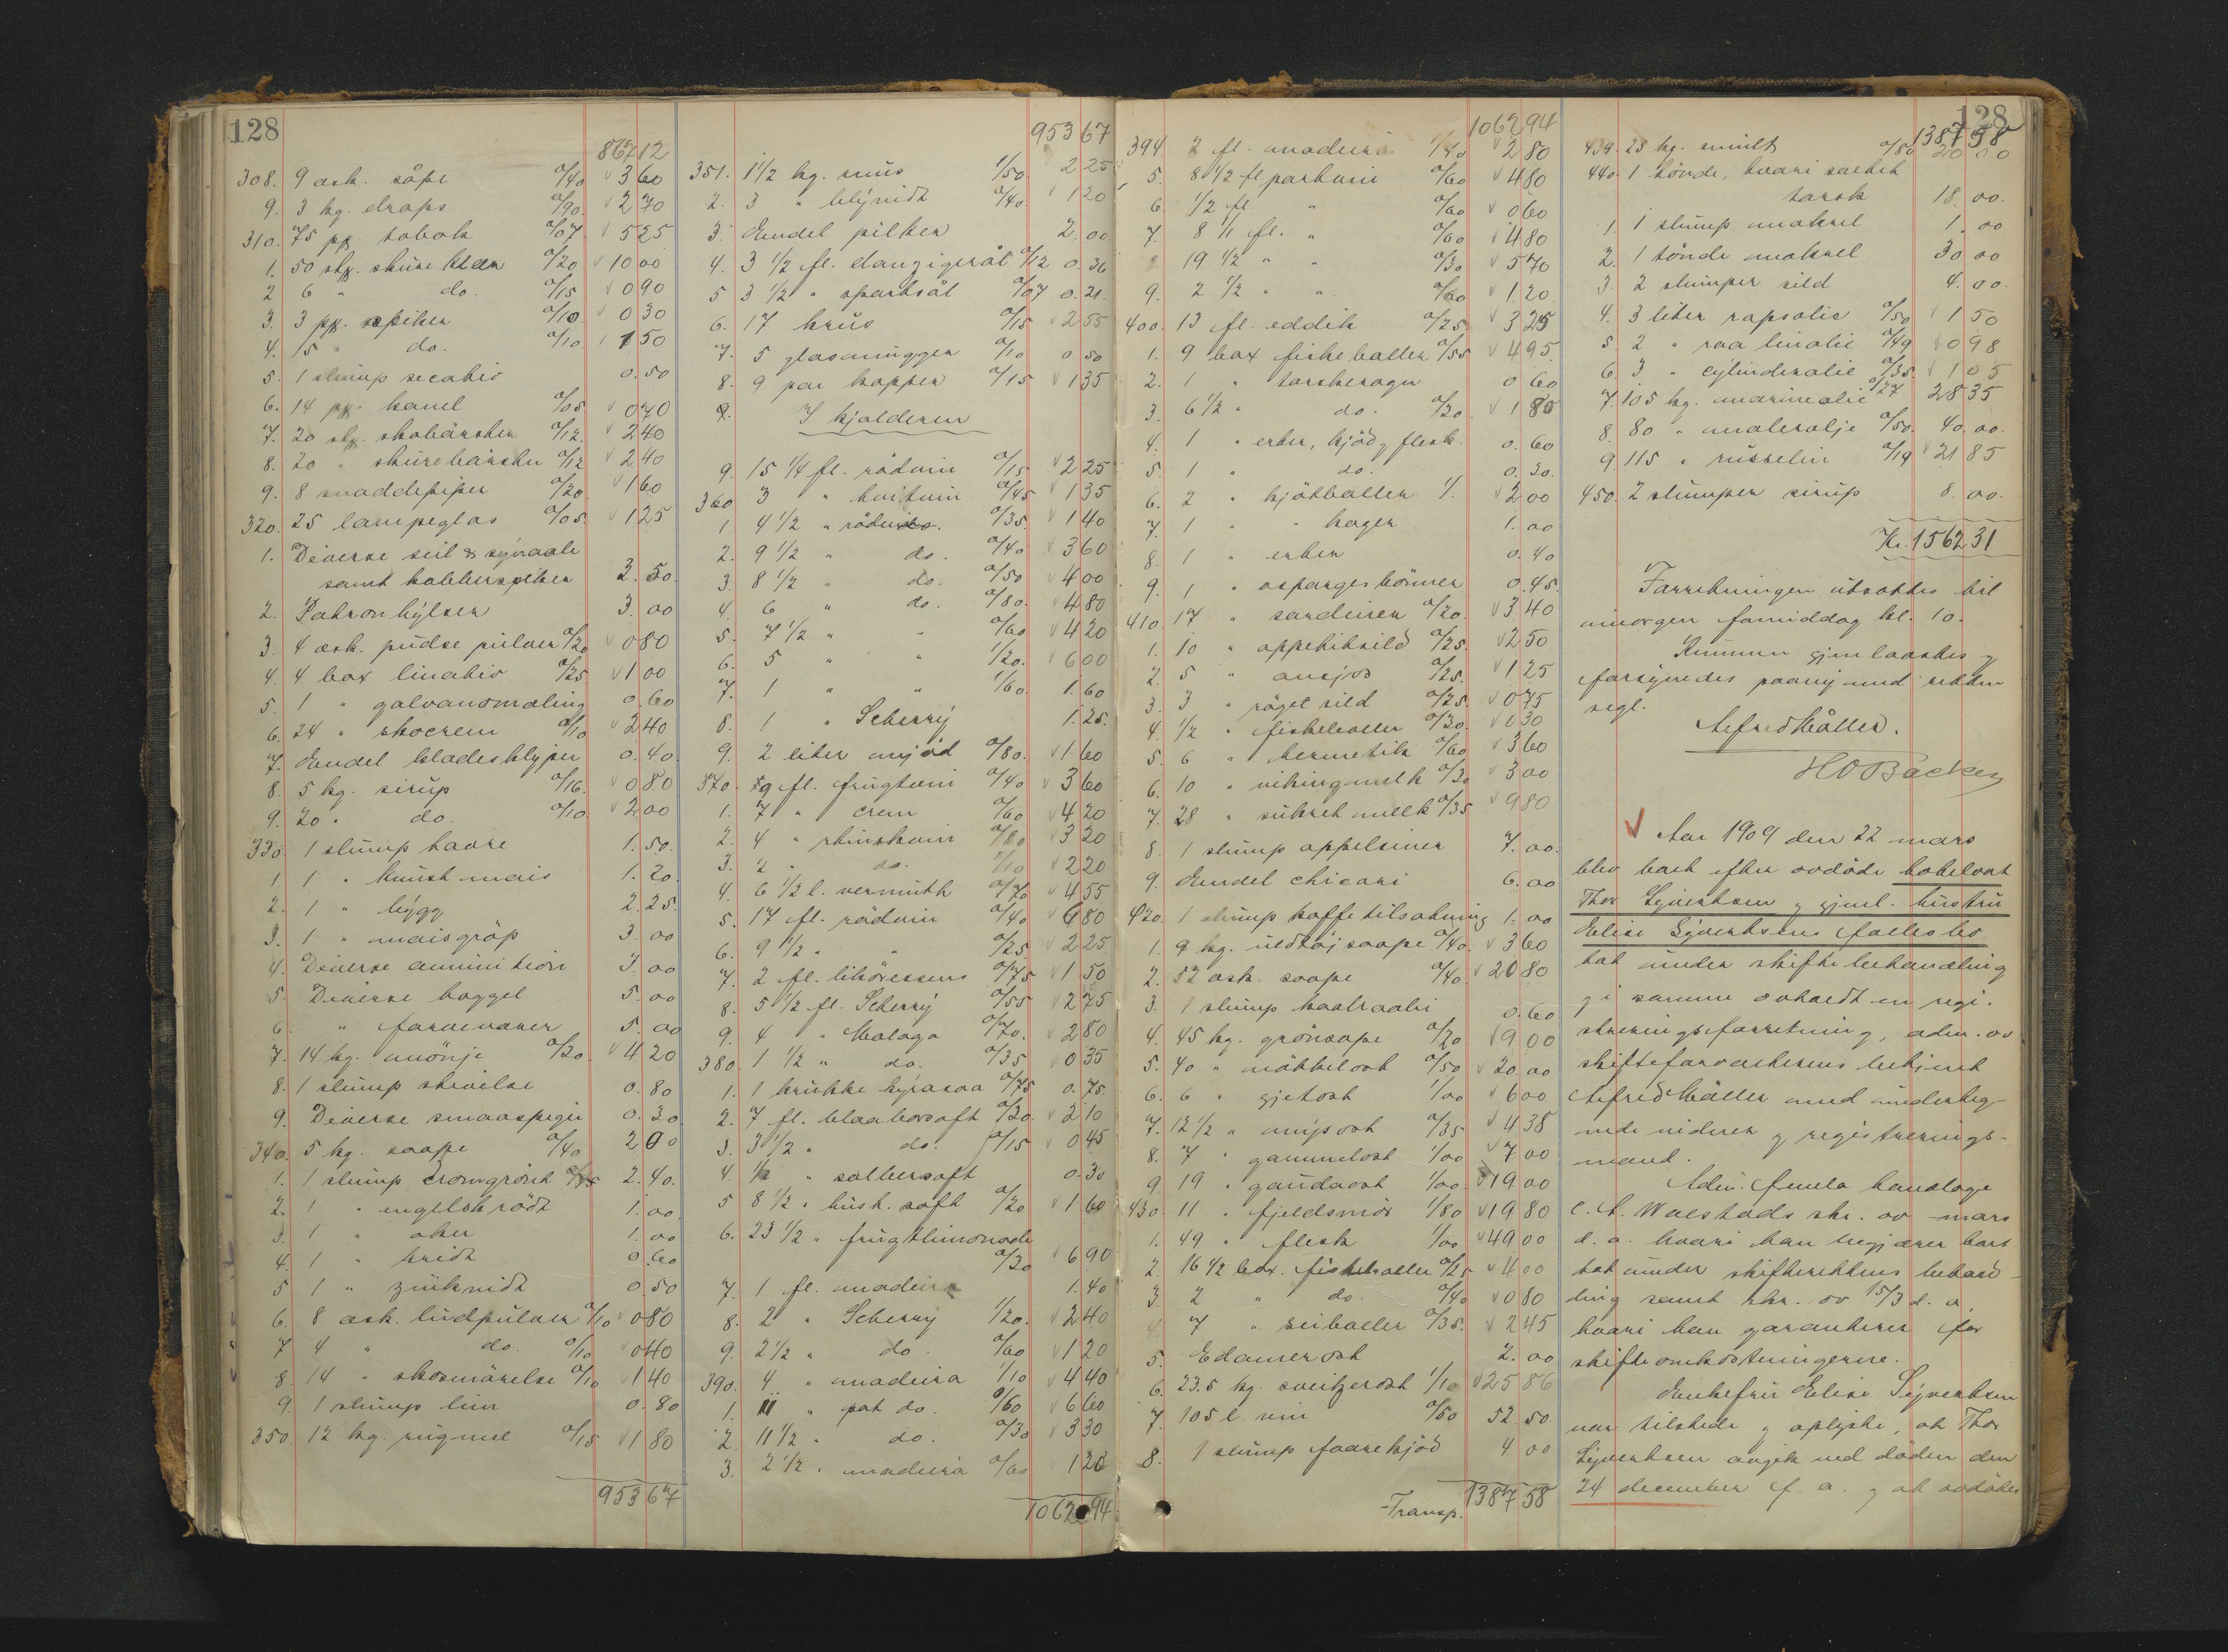 128
867 12
308. 9 ask. såpe a/40 3 60
9. 3 kg. drops a/90. 2 70
310. 75 pk. tobak a/07 5 25
1. 50 stk. skureklæer a/20 10 00
2 6 " do. a/15 0 90
3. 3 pk. spiker a/10. 0 30
4. 15 " do. a/10. 1 50
5. 1 slump secativ 0.50
6. 14 pk. kanel a/05. 0 70
7. 20 stk. skobørster a/12. 2 40
8. 20 " skurebørster a/12 2 40
9. 8 snaddepiper a/20. 1 60
320. 25 lampeglas a/05. 1 25
1. Diverse seil & synaale
samt kobberspiker 2.50.
2. Patronhylser 3.00
3. 4 æsk. pudse pulver a/20 0 80
4. 4 box linativ a/25 1 00
5. 1 " galvanomaling 0.60
6. 24 " skocrem a/10 2 40
7. Endel kladesklyper 0.40.
8. 5 kg. sirup a/16. 0 80
9. 20 " do. a/10. 2 00
330. 1 slump havre 1.50.
1. 1 " knust mais 1.20.
2. 1 " bygg 2.25.
3. 1 " maisgrøp 3.00
4. Diverse amunition 3.00
5. Diverse haggel 5.00
6. " farvevarer 5.00
7. 14 kg. mønje a/30. 4 20
8. 1 slump stivelse 0.80
9. Diverse smaaspeger 0.30
340. 5 kg. saape a/40 2 00
1. 1 slump cromgrønt 2.40.
2. 1 " engelsk rødt 1.00
3. 1 " oker 1.00
4. 1 " kridt 0.60
5 1 " zinkvidt 0.50
6. 8 æsk. ludpulver a/10 0 80
7 4 " do. a/10 0 40
8. 14 " skosmørelse a/10 1 40
9. 1 slump lim 0.80
350. 12 kg. rugmel a/15 1 80
953 67
953 67
351. 1 1/2 kg. snus 1/50. 2 25
2. 3 " blyvidt a/40. 1 20
3. Endel pilker 2.00
4. 3 1/2 fl. danzigerøl a/12 0.36
5 3 1/2 " sportsøl a/07 0.21.
6. 17 krus a/15 2 55
7. 5 glasmugger a/10 0 50
8. 9 par kopper a/15 1 35
9. I kjælderen
9. 15 1/4 fl. rødvin a/15 2 25
360 3 " hvitvin a/45 1 35
1 4 1/2 " rødvin a/35. 1 40
2. 9 1/2 " do. a/40 3 60
3. 8 1/2 " do. a/50 4 00
4. 6 " do. a/80. 4 80
5. 7 1/2 " " a/60 4 20
6. 5 " " 1/20. 6 00
7. 1 " " 1/60. 1.60
8. 1 " Scherry 1.25.
9. 2 liter mjød a/80. 1 60
370. 9 fl. frugtvin a/40 3 60
1. 7 " crem a/60 4 20
2. 4 " rhinskvin a/80 3 20
3. 2 " do. 1/10 2 20
4. 6 1/2 l. vermuth a/70 4 55
5. 17 fl. rødvin a/40 6 80
6. 9 1/2 " " a/25. 2 25
7. 2 fl. likøressens a/75 1 50
8. 5 1/2 fl. Scherry a/55 2 75
9. 4 " Malaga a/70. 2 80
380. 1 1/2 " do. a/35 0 35
1. 1 krukke kyrasaa a/75 0.75.
2. 7 fl. blaabærsaft a/30. 2 10
3. 3 1/2 " do. a/15 0 45
4. 1/2 " solbærsaft 0.30
5 8 1/2 " hush. saft a/20 1 60
6. 23 1/2 " frugtlimonade
a/30 6 90
7. 1 fl. madeira 1.40
8. 2 " Scherry 1/20. 2 40
9. 2 1/2 " do. a/60 1 20
390. 4 " madeira 1/10 4 40
1. 11 " port do. a/60 6 60
2. 11 1/2 " do. a/30 3 30
3. 2 1/2 " madeira a/60 1 20
1062 94
1062 94
394. 2 fl. madeira 1/40 2 80
5. 8 1/2 fl portvin a/60 4 80
6. 1/2 fl. " a/60 0 60
7. 8 1/1 fl. " a/60 4 80
8. 19 1/2 " " a/30 5 70
9. 2 1/2 " " a/60 1.20
400. 13 fl. eddik a/25 3 25
1. 9 box fiskeboller a/55 4 95.
2. 1 " torskerogn 0 60
3. 6 1/2 " do. a/30 1 80
4. 1 " erter, kjød & flesk 0.60
5. 1 " do. 0.30.
6. 2 " kjøtboller 1/. 2 00
7. 1 " " kager 1.00
8. 1 " erter 0.40
9. 1 " aspargesbønner 0.45.
410. 17 " sardiner a/20. 3 40
1. 10 " appetitsild a/25. 2 50
2. 5 " ansjos a/25. 1 25
3. 3 " røget sild a/25. 0 75
4. 1/2 " fiskeboller a/30. 0 30
5. 6 " hermetik a/60 3 60
6. 10 " vikingmelk a/30 3 00
7. 28 " sukret melk a/35 9 80
8. 1 slump appelsiner 7.00.
9. Endel chicori 6.00
420. 1 slump kaffetilsætning 1.00
1. 9 kg. uldtøjsaape a/40. 3 60
2. 52 ask. saape a/40. 20 80
3. 1 slump kaalraabi 0.60
4. 45 kg. grønsape a/20 9 00
5. 40 " nøkkelost a/50 20.00
6. 6 " gjetost 1/00 6 00
7. 12 1/2 " mysost a/35 4 38
8. 7 " gammelost 1/00 7 00
9. 19 " gaudaost 1/00. 19 00
430. 11 " fjeldsmør 1/80 19 80
1. 49 " flesk 1/00 49 00
2. 16 1/2 box. fiskeboller a/25 4 00
3. 2 " do. a/40 0 80
4. 7 " seiboller a/35. 2 45
5. Edamerost 2.00
6. 23.5 kg. sveitzerost 1/10 25 86
7. 105 l. vin a/50 52.50.
8. 1 slump faarekjød 4.00
Transp. 1387 58
128
1387 58
439. 25 kg. smult a/80 20 00
440. 1 tønde, hvori saltet
torsk 18.00.
1. 1 slump makrel 1.00
2. 1 tønde makrel 30 00
3. 2 slumper sild 4.00.
4. 3 liter rapsolie a/50 1 50
5. 2 " raa linolie a/49 0 98
6. 3 " cylinderolie a/35. 1 05
7. 105 kg. marineolie a/27 28 35
8. 80 " malerolje a/50. 40.00.
9. 115 " russelin a/19 21 85
450. 2 slumper sirup 8.00.
Kr. 1562 31
Forretningen utsattes til
imorgen formiddag kl. 10.
Rummene gjenlaastes &
forsynedes paany med rettens
segl.
Alfred Møller.
H O Backer
Aar 1909 den 22 mars
blev boet efter avdøde hotelvært
Thor Syvertsen & gjenl. hustru
Elise Syvertsens fællesbo
tat under skiftebehandling
& i samme avholdt en regi-
streringsforretning, adm. av
skifteforvalterens betjent
Alfred Møller med underteg-
nede vidner & registrerings-
mænd.
Adm. fremla handlags
C. A. Walstads skr. av mars
d. a. hvori han begjærer boet
tat under skifterettens behand-
ling samt skr. av 15/3 d. a.
hvori han garanterer for
skifteomkostningerne.
Enkefru Elise Syvertsen
var tilstede & oplyste, at Thor
Syvertsen avgik ved døden den
24 december f. a. & at avdødes